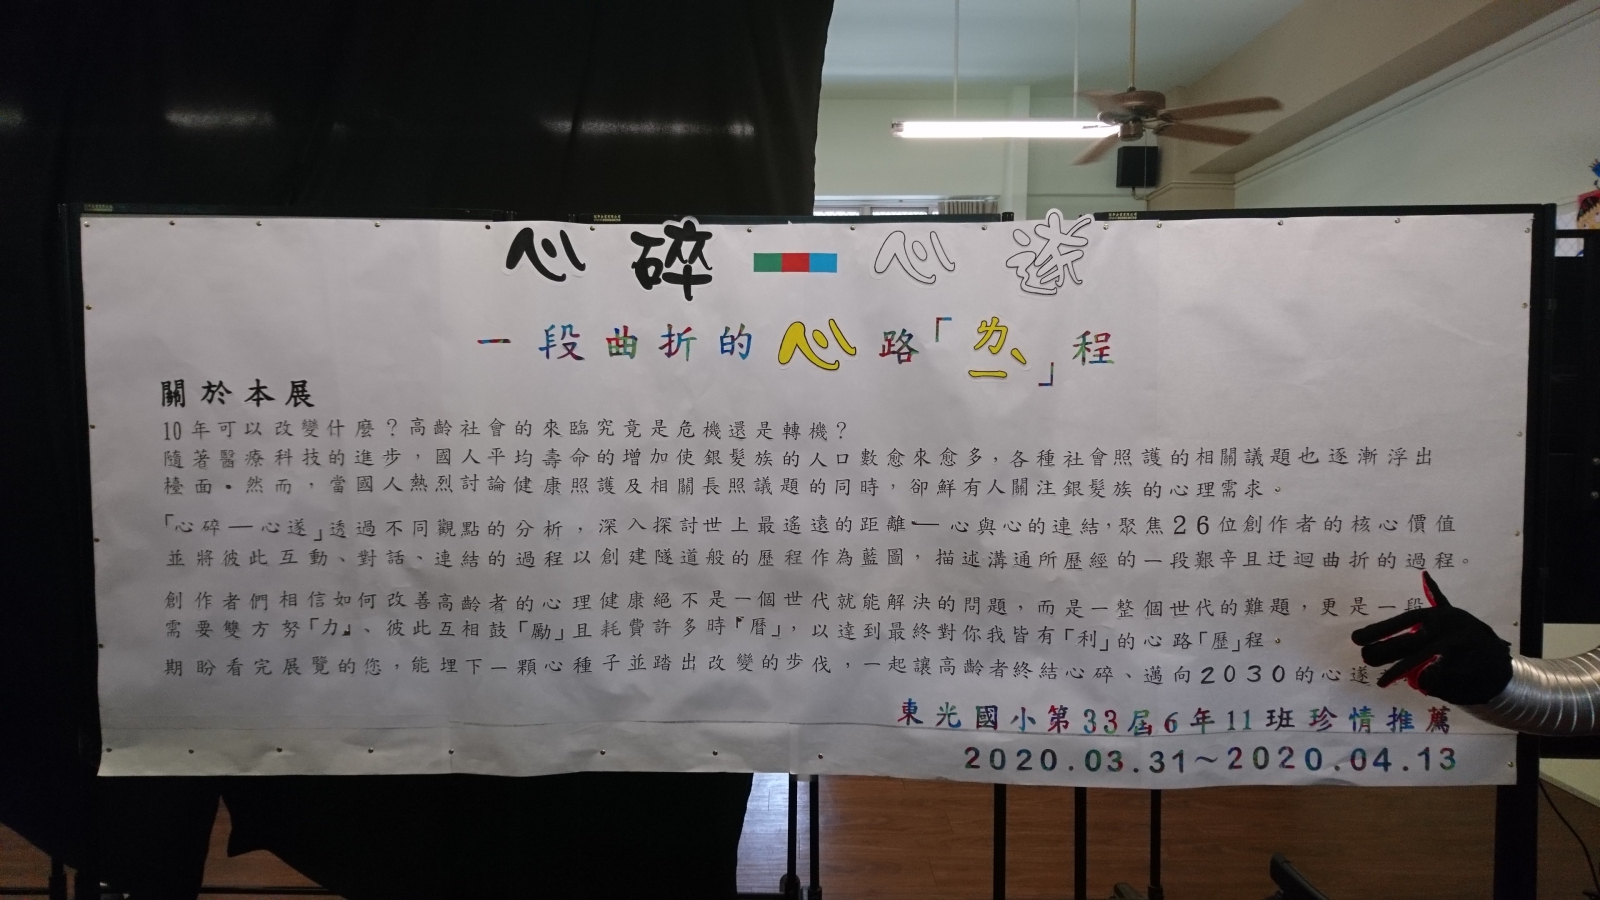 心碎—心遂
一段曲折的心路「ㄌㄧˋ」程
關於本展
10年可以改變什麼？高齡社會的來臨究竟是危機還是轉機？
隨著醫療科技的進步，國人平均壽命的增加使銀髮族的人口數愈來愈多，各種社會照護的相關議題也逐漸浮出
檯面。然而，當國人熱烈討論健康照護及相關長照議題的同時，卻鮮有人關注銀髮族的心理需求。
「心碎—心遂」透過不同觀點的分析，深入探討世上最遙遠的距離—心與心的連結，聚焦26位創作者的核心價值
並將彼此互動、對話、連結的過程以創建隧道般的歷程作為藍圖，描述溝通所歷經的一段艱辛且迂迴曲折的過程。
創作者們相信如何改善高齡者的心理健康絕不是一個世代就能解決的問題，而是一整個世代的難題，更是一段
需要雙方努「力」、彼此互相鼓「勵」且耗費許多時「曆」，以達到最終對你我皆有「利」的心路「歷」程。
期盼看完展覽的您，能埋下一顆心種子並踏出改變的步伐，一起讓高齡者終結心碎、邁向2030的心遂
東光國小第33屆6年11班珍情推薦
2020.03.31～2020.04.13